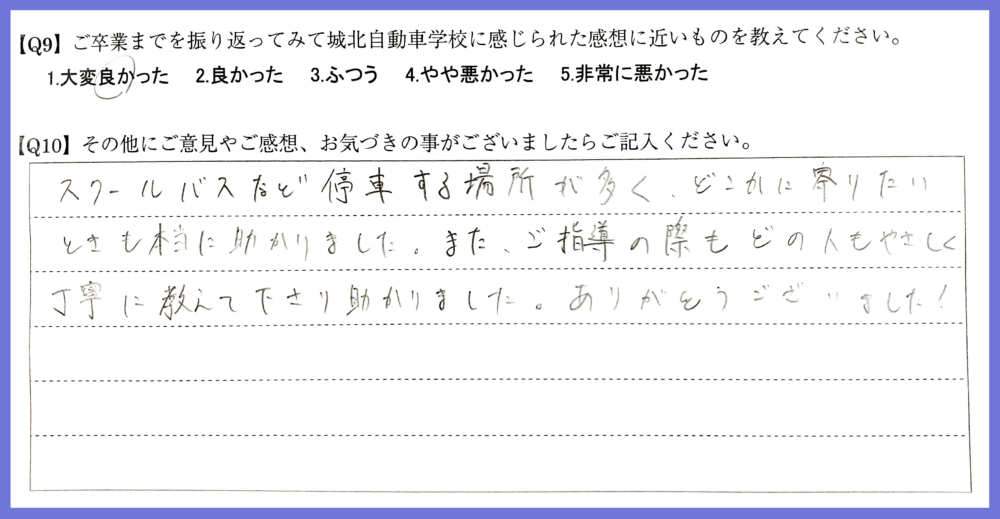 【Q9】ご卒業までを振り返ってみて城北自動車学校に感じられた感想に近いものを教えてください。
1.大変良かった 2.良かった 3.ふつう 4.やや悪かった 5.非常に悪かった
【Q10】その他にご意見やご感想、お気づきの事がございましたらご記入ください。
スクールバスなど停車する場所が多く、どこかに寄りたい
ときも本当に助かりました。また、ご指導の際もどの人もやさしく
丁寧に教えて下さり助かりました。ありがとうございました!